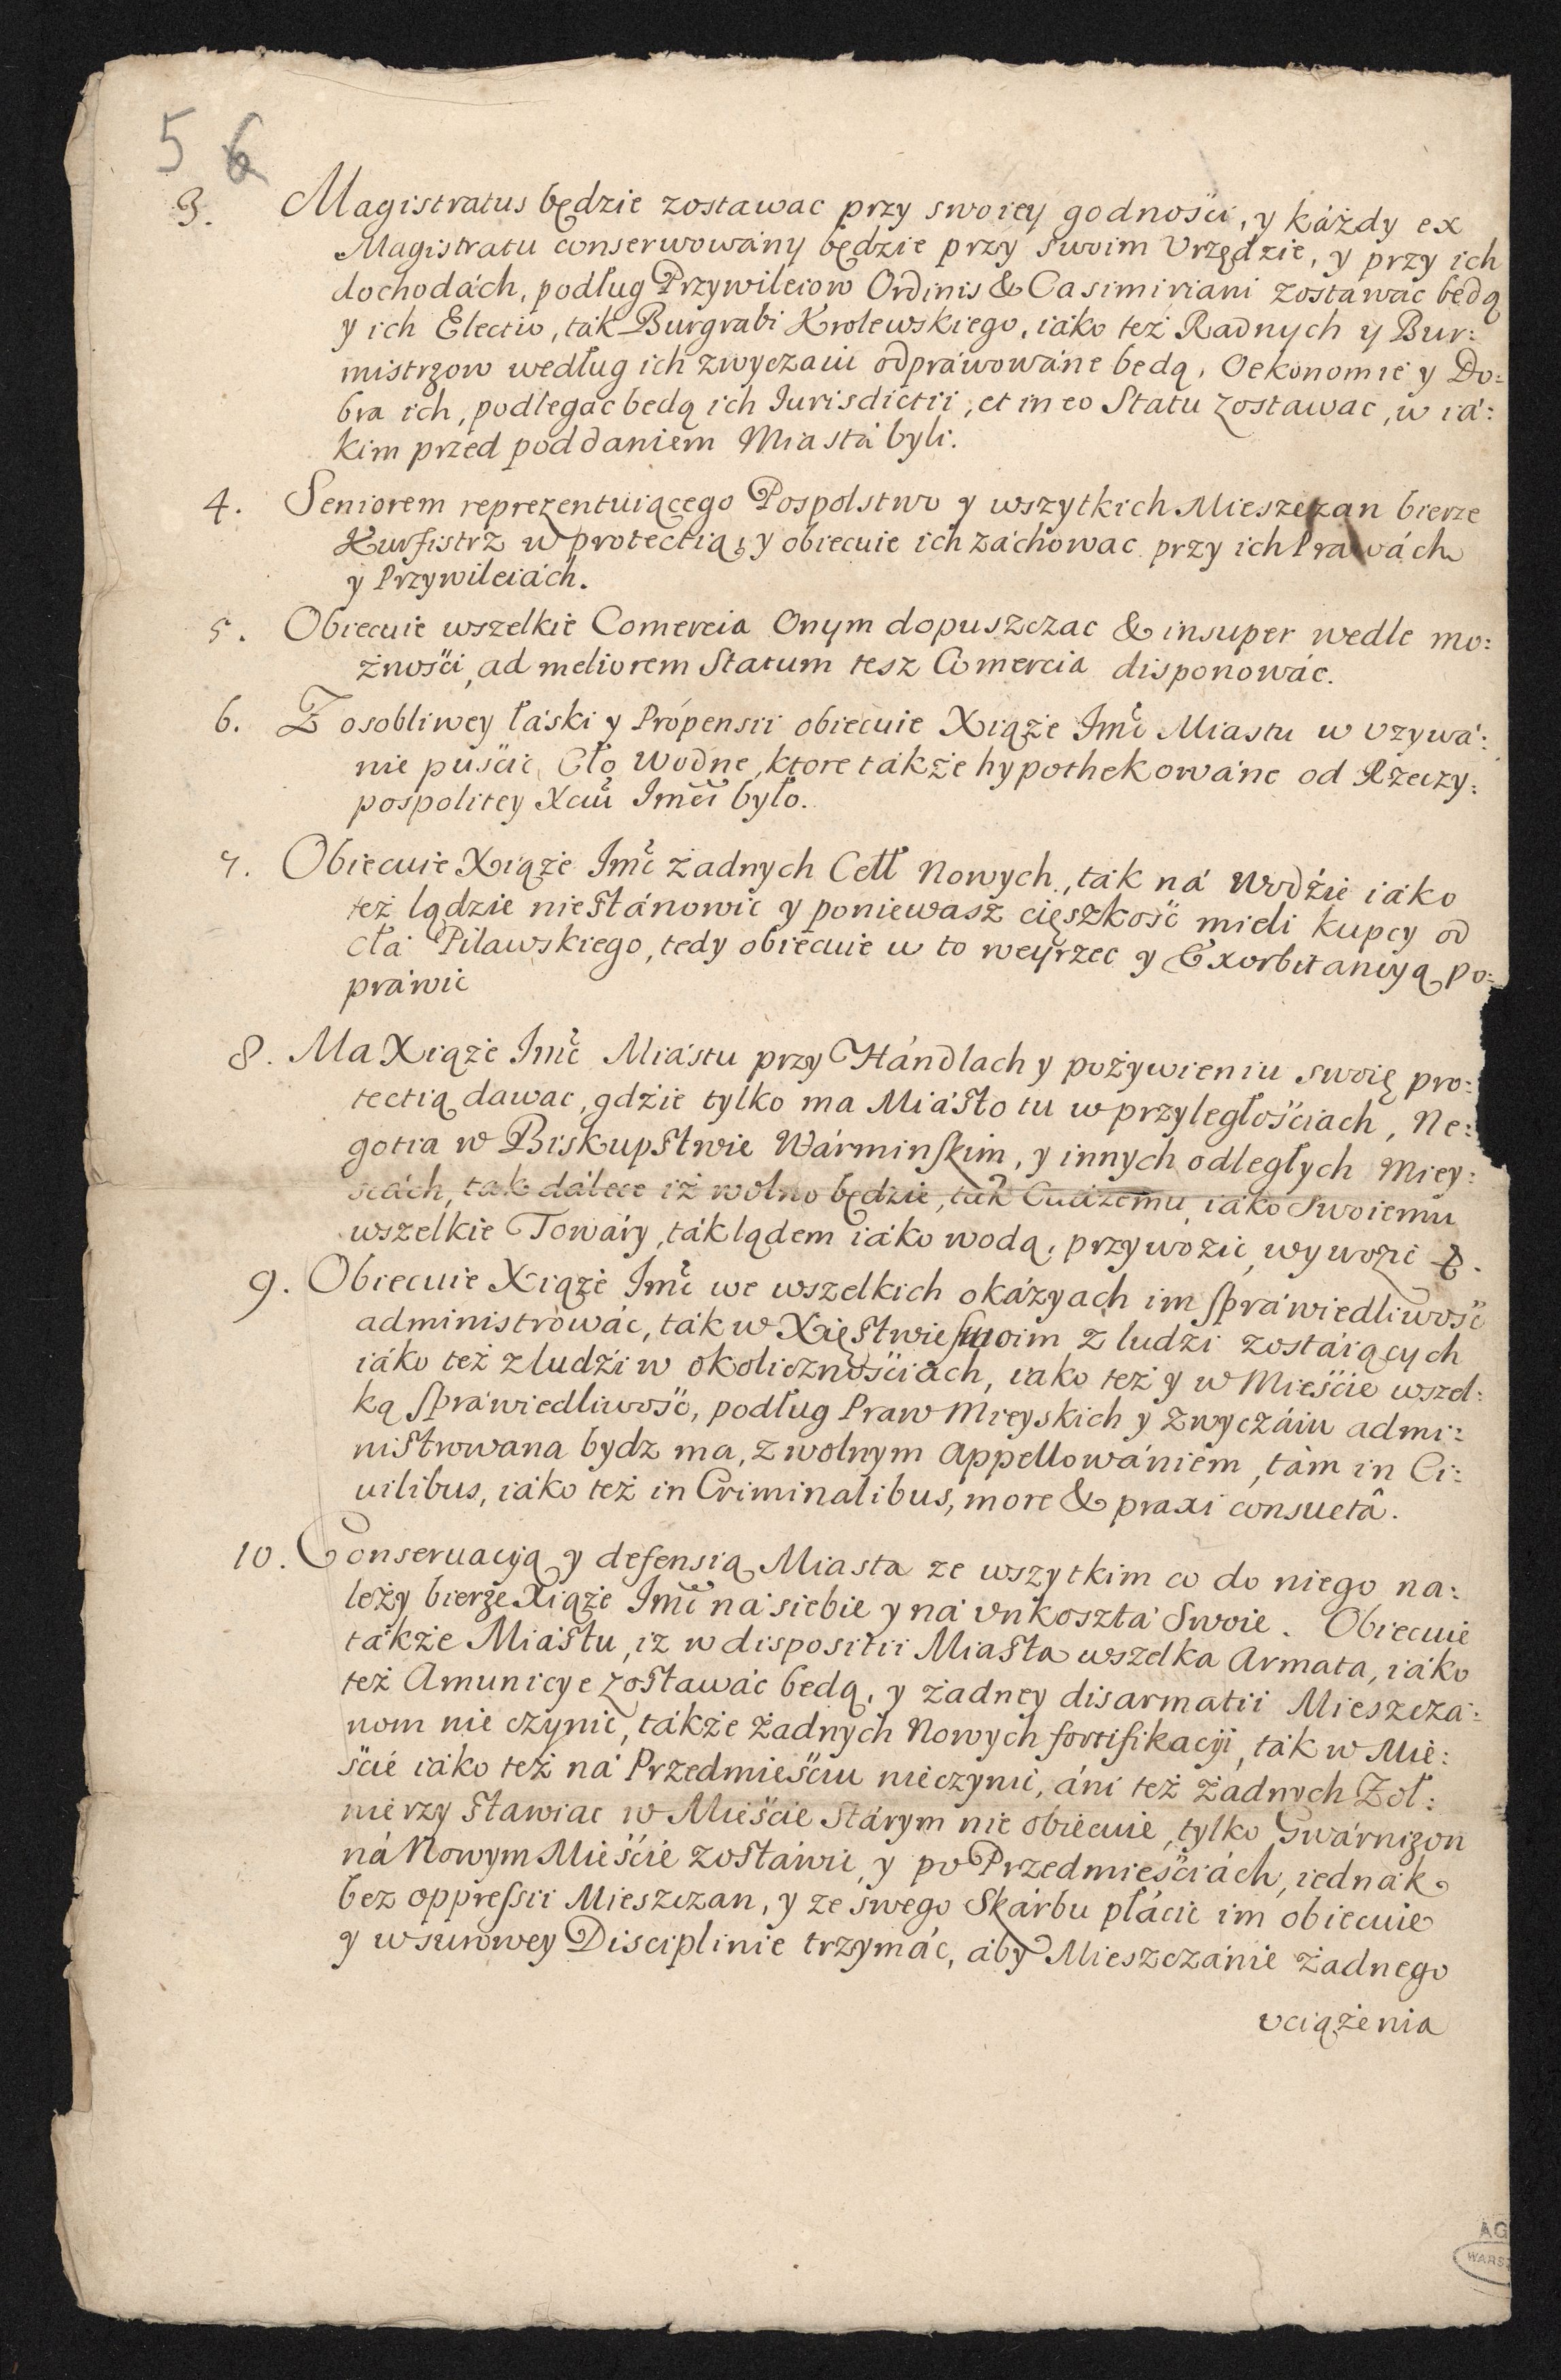 5 6
3. Magistratus będzie zostawac przy swoiey godności, y káżdy ex
Magistratu conserwowány będzie przy swoim Vrzędzie, y przy ich
dochodách, podług Przywileiow Ordinis & Casimiriani zostawać będą
y ich Electio, ták Burgrabi Krolewskiego, iáko też Radnych y Bur:
mistrzow według ich zwyczaiu odpráwowáne bedą, Oekonomie y Do:
bra ich, podlegác bedą ich Iurisdictii, et in eo Statu zostawac, w iá:
kim przed poddaniem Miastá byli.
4. Seniorem reprezentuiącego Pospolstwo y wszytkich Mieszczan bierze
Kurfistrz w protectią, y obiecuie ich záchowac przy ich Prawách
y Przywileiách.
5. Obiecuie wszelkie Comercia Onym dopuszczac & insuper wedle mo:
żności, ad meliorem Statum tesz Comercia disponowác.
6. Z osobliwey łáski y Própensii obiecuie Xiąże Imć Miastu w vzywá:
nie puścic, Cło wodne, ktore tákże hypothekowáne od Rzeczy:
pospolitey Xciu Imći było.
7. Obiecuie Xiąże Imć żadnych Cełł Nowych, ták ná wodźie iáko
też lądzie nie stánowic y poniewasz cięszkość mieli kupcy od
cłá Pilawskiego, tedy obiecuie w to weyrzec y Exorbitancyą po:
práwic
8. Ma Xiąże Imć Miástu przy Hándlach y pożywieniu swoię pro:
tectią dawac, gdzie tylko ma Miásto tu w przyległościach, Ne:
gotia w Biskupstwie Wárminskim, y innych odległych Miey:
scách, tak dálece iż wolno będzie, ták Cudzemu, iáko Swoiemu
wszelkie Towáry, ták lądem iáko wodą, przywozic, wywozic &.
9. Obiecuie Xiąże Imć we wszelkich okázyach im spráwiedliwość
administrowác, ták w Xięstwie swoim z ludzi zostáiących
iáko też z ludźi w okolicznościach, iako też y w Mieście wszel:
ką spráwiedliwość, podług Praw Mieyskich y zwyczáiu admi:
nistrowana bydz ma, z wolnym Appellowániem, tám in Ci:
uilibus, iáko też in Criminalibus, more & praxi consuetâ.
10. Conseruacyą y defensią Miasta ze wszytkim co do niego na:
leży bierze Xiąże Imć ná siebie y ná vnkosztá Swoie. Obiecuie
tákże Miástu, iz w dispositii Miasta wszelka Armata, iáko
też Amunicye zostawác bedą, y żadney disarmatii Mieszczá:
nom nie czynic, tákże żadnych Nowych fortifikacyi, ták w Mie:
ście iáko też ná Przedmieściu nieczynic, áni też żadnych Zoł:
nierzy stawiac w Mieście Stárym nie obiecuie, tylko Gwárnizon
ná Nowym Mieście zostáwic, y po Przedmieściách, iednák
bez oppressii Mieszczan, y ze swego Skárbu płácic im obiecuie
y w surowey Disciplinie trzymác, áby Mieszczánie żadnego
vciążenia
AG
WARSZ